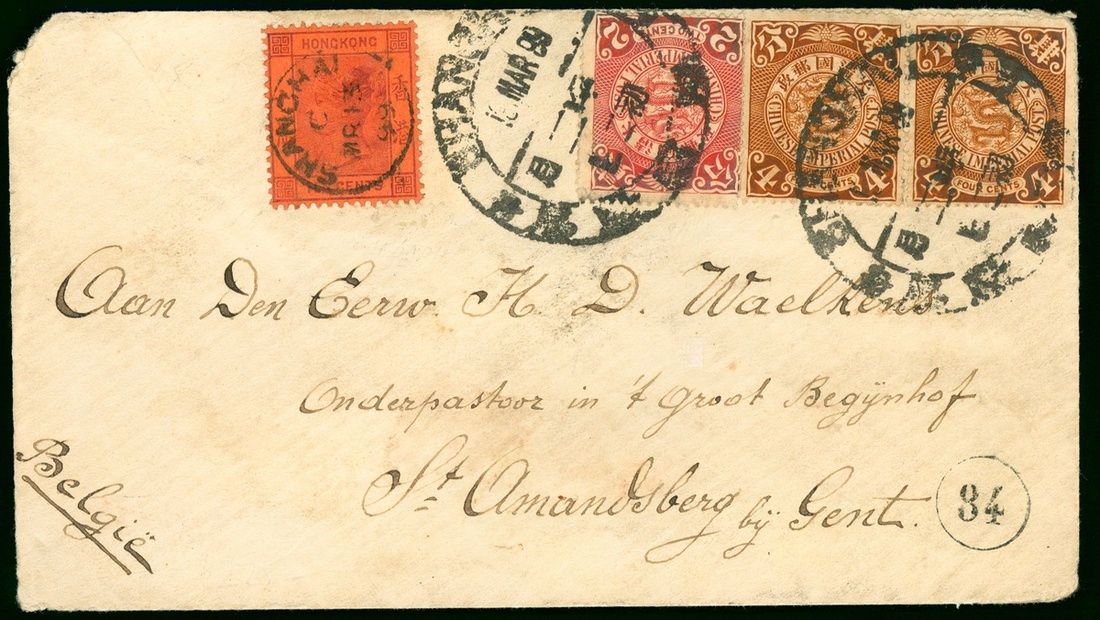 HONGKONG
香港
SHANGHAI
C
MR 13
99
CENTS
SHANGHAI
MAR 99
2 TWO CENTS 2
CHINESE IMPERIAL POST
CHINESE IMPERIAL POST
4 CENTS 4
IMPERIAL POST
4 FOUR CENTS 4
Aan Den Eerw. H. D. Waelkens
Onderpastoor in 't Groot Begijnhof
St. Amandsberg bij Gent.
België
84